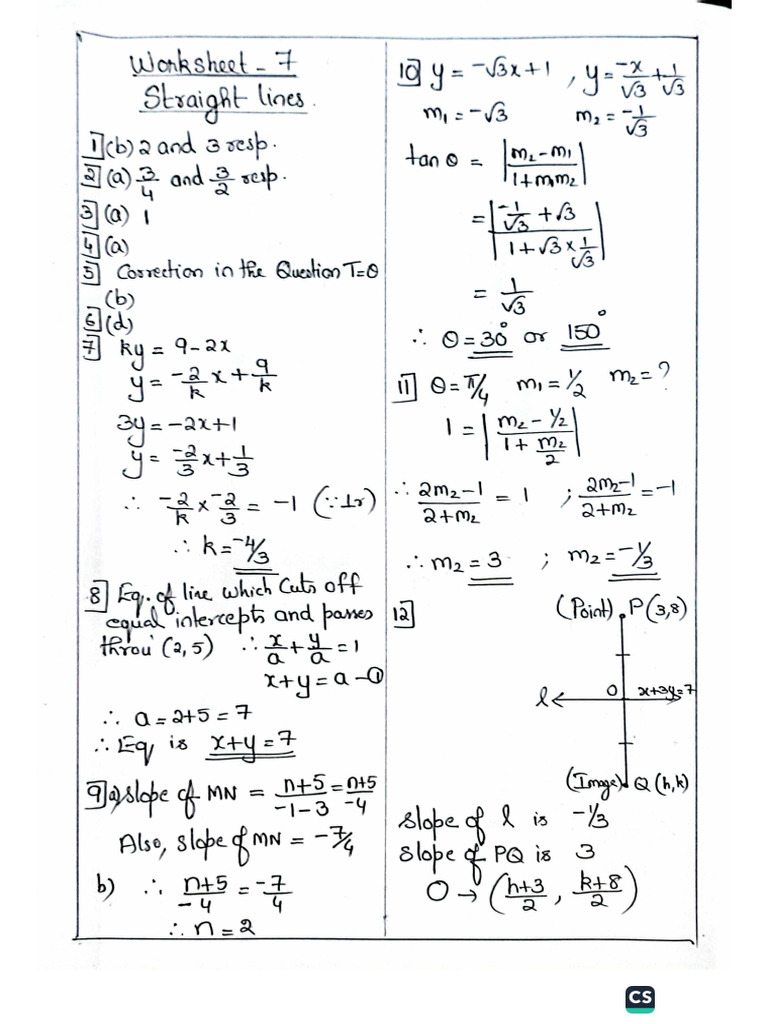 Worksheet - 7
Straight lines.
1 (b) 2 and 3 resp.
2 (a) 3/4 and 3/2 resp.
3 (a) 1
4 (a)
5 Correction in the Question T=θ
(b)
6 (d)
7 ky = 9-2x
y = -2/k x + 9/k
3y = -2x+1
y = -2/3 x + 1/3
∴ -2/k × -2/3 = -1 (∵ ⊥r)
∴ k = -4/3
8 Eq. of line which cuts off
equal intercepts and passes
throu' (2,5) ∴ x/a + y/a = 1
x+y = a -①
∴ a = 2+5 = 7
∴ Eq is x+y=7
9 a) slope of MN = n+5/-1-3 = n+5/-4
Also, slope of MN = -7/4
b) ∴ n+5/-4 = -7/4
∴ n = 2
10 y = -√3x+1 , y = -x/√3 + 1/√3
m₁ = -√3 m₂ = -1/√3
tan θ = |m₂-m₁/1+m₁m₂|
= |-1/√3 + √3/1+√3×1/√3|
= 1/√3
∴ θ = 30° or 150°
11 θ = π/4 m₁ = 1/2 m₂ = ?
1 = |m₂ - 1/2/1 + m₂/2|
∴ 2m₂-1/2+m₂ = 1 ; 2m₂-1/2+m₂ = -1
∴ m₂ = 3 ; m₂ = -1/3
12 (Point) P(3,8)
l O x+3y=7
(Image) Q (h,k)
slope of l is -1/3
slope of PQ is 3
O → (h+3/2, k+8/2)
CS